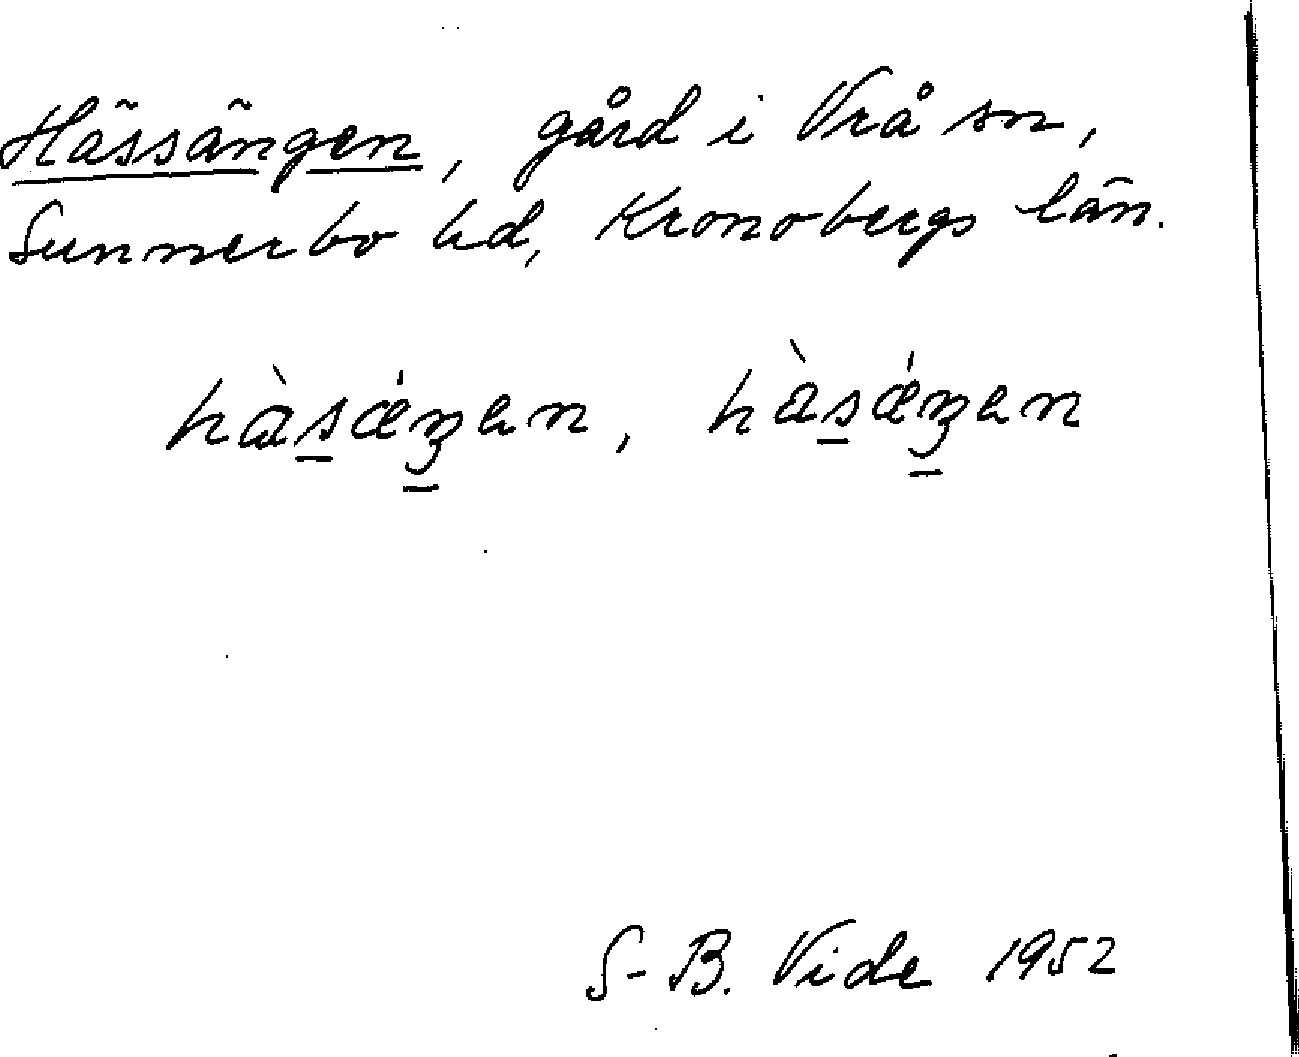 Hässängen, gård i Vrå sn,
Sunnerbo hd, Kronobergs län.
hàs̲ǽŋ̲en, hàs̲ǽŋ̲en
S-B. Vide 1952